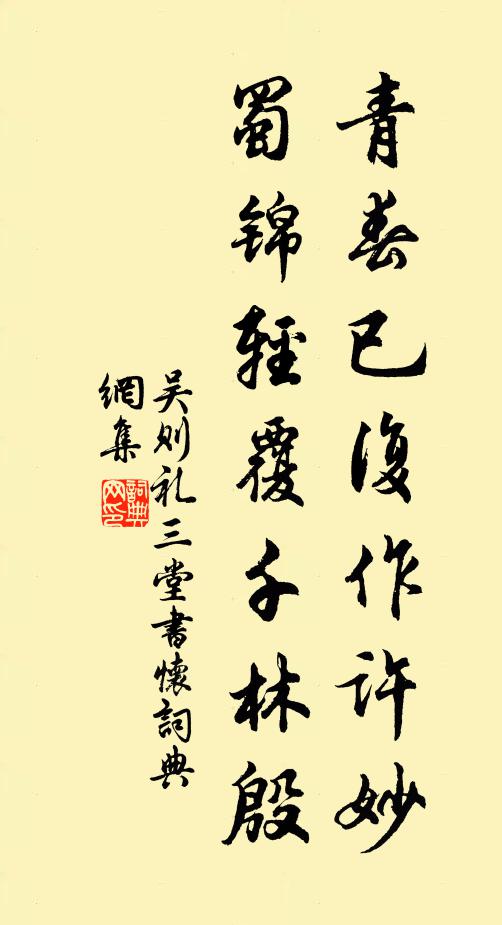 青春已復作許妙
蜀錦輕覆千林殷
吴则礼三堂書懷詞典
網集
詞典網印